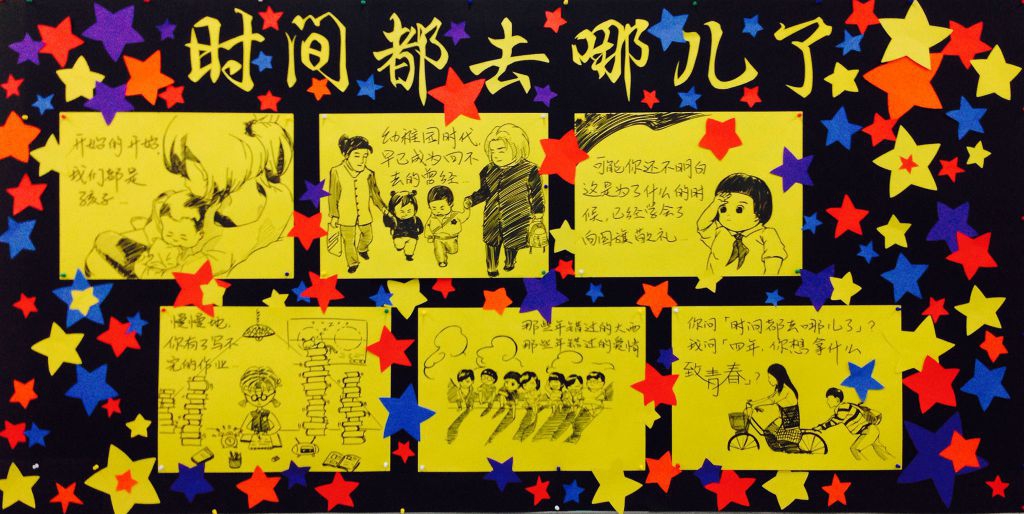 时间都去哪儿了
开始的开始
我们都是
孩子…
幼稚园时代
早已成为回不
去的曾经…
可能你还不明白
这是为了什么的时
候，已经学会了
向国旗敬礼…
慢慢地，
你有了写不
完的作业…
那些年错过的大雨
那些年错过的爱情
你问「时间都去哪儿了」？
我问「四年，你想拿什么
致青春」？